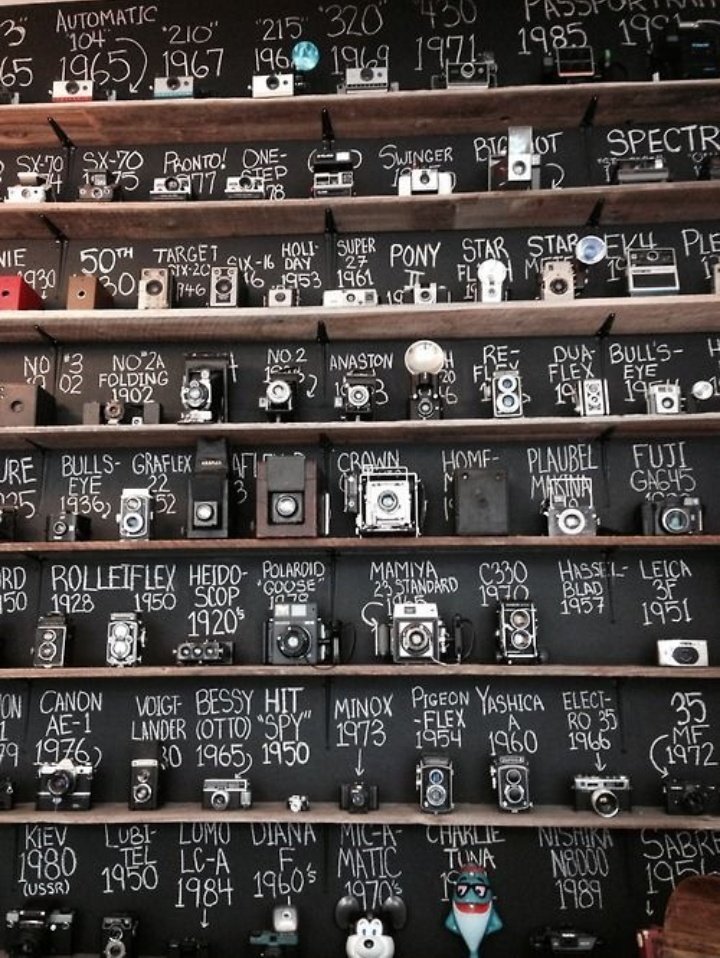 AUTOMATIC
"104"
1965
"210"
1967
"215"
"320"
1969
430
1971
1985
SX-70
SX-70
PRONTO!
ONE-
STEP
SWINGER
SPECTR
50TH
TARGET
SIX-20
1946
SIX-16
HOLI-
DAY
1953
SUPER
27
1961
PONY
II
STAR
STAR
EK4
1930
NO
#3
NO 2A
FOLDING
1902
NO.2
ANASTON
RE-
FLEX
DUA-
FLEX
BULL'S-
EYE
BULLS-
EYE
1936
GRAFLEX
22
CROWN
PLAUBEL
MAKINA
FUJI
GA645
ROLLEIFLEX
1928 1950
HEIDO-
SCOP
1920's
POLAROID
"GOOSE"
MAMIYA
23 STANDARD
C330
1970
HASSEL-
BLAD
1957
LEICA
3F
1951
CANON
AE-1
1976
VOIGT-
LANDER
BESSY
(OTTO)
1965
HIT
"SPY"
1950
MINOX
1973
PIGEON
-FLEX
1954
YASHICA
A
1960
ELECT-
RO 35
1966
35
MF
1972
KIEV
1980
(USSR)
LUBI-
TEL
1950
LOMO
LC-A
1984
DIANA
F
1960's
MIC-A-
MATIC
1970's
CHARLIE
TUNA
NISHIKA
N8000
1989
SABRE